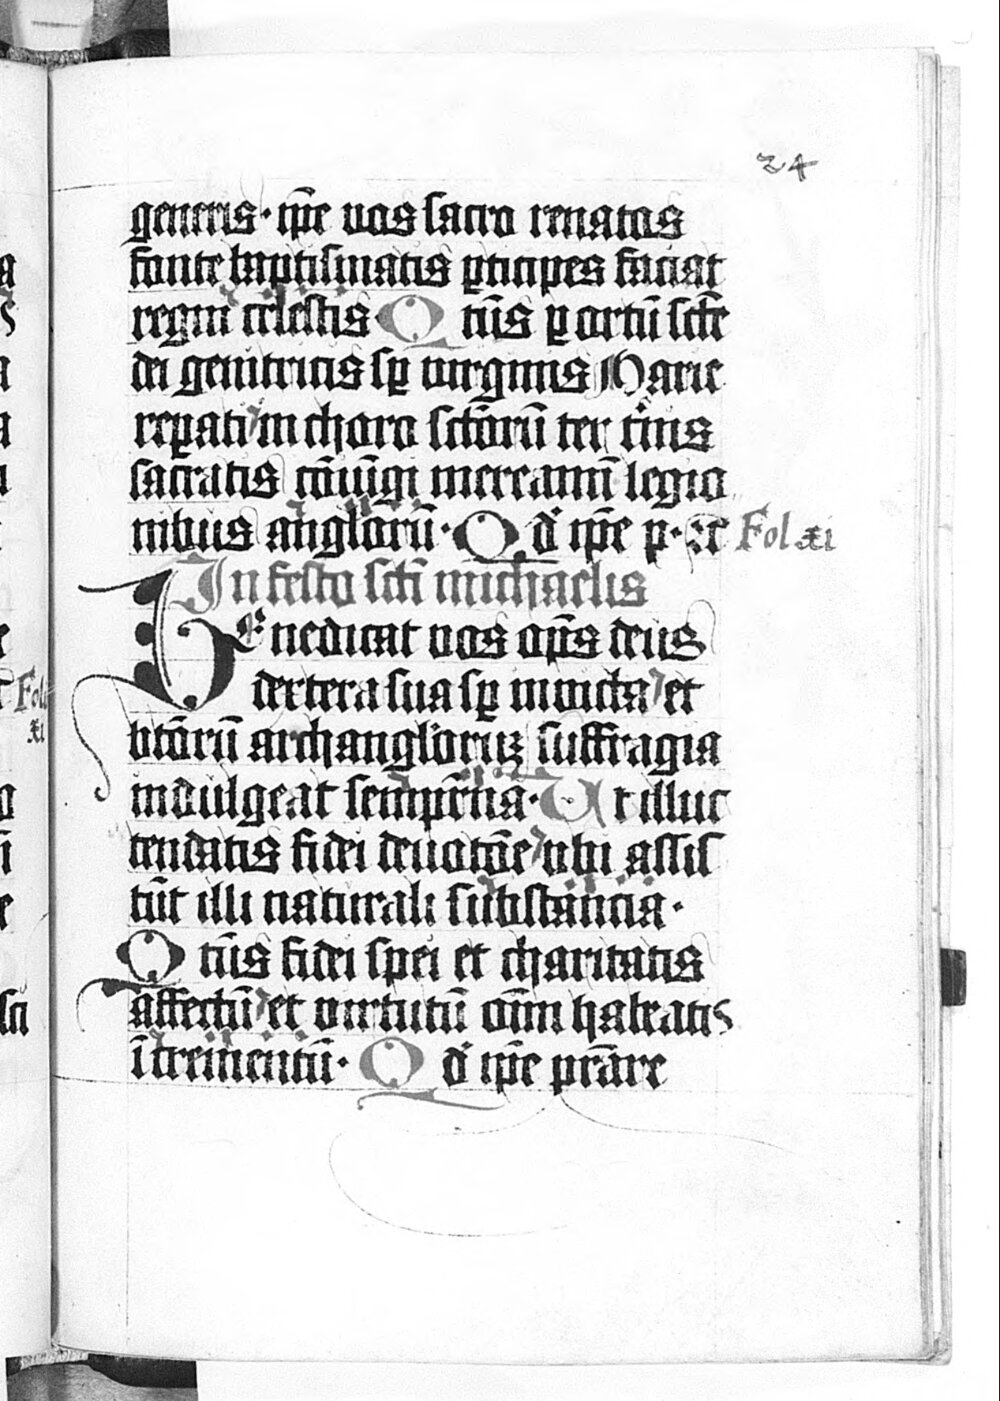 24
generis· ip̄e vos sacro renatos
fonte baptismatis ꝑticipes faciat
regni celestis Q tin̄s ꝑ ortū scē
dei genitricis sꝑ virginis Marie
reꝑati in choro sctōrū ter tin̄s
sacratis cōiūgi mereamī legio
nibus anglorū· Q d' ip̄e p· ⁊c Fol xi
In festo scti michaelis
Be nedicat vos op̄s deus
dextera sua sꝑ inuicta et
btōrū archanglorūꝫ suffragia
indulgeat semp̄itna· U t illuc
tendatis fidei deuotōe ubi assis
tūt illi naturali substancia·
Q tin̄s fidei spei et charitatis
affectū et virtutū oīm habeatis
īcrementū· Q d' ip̄e p̄rare